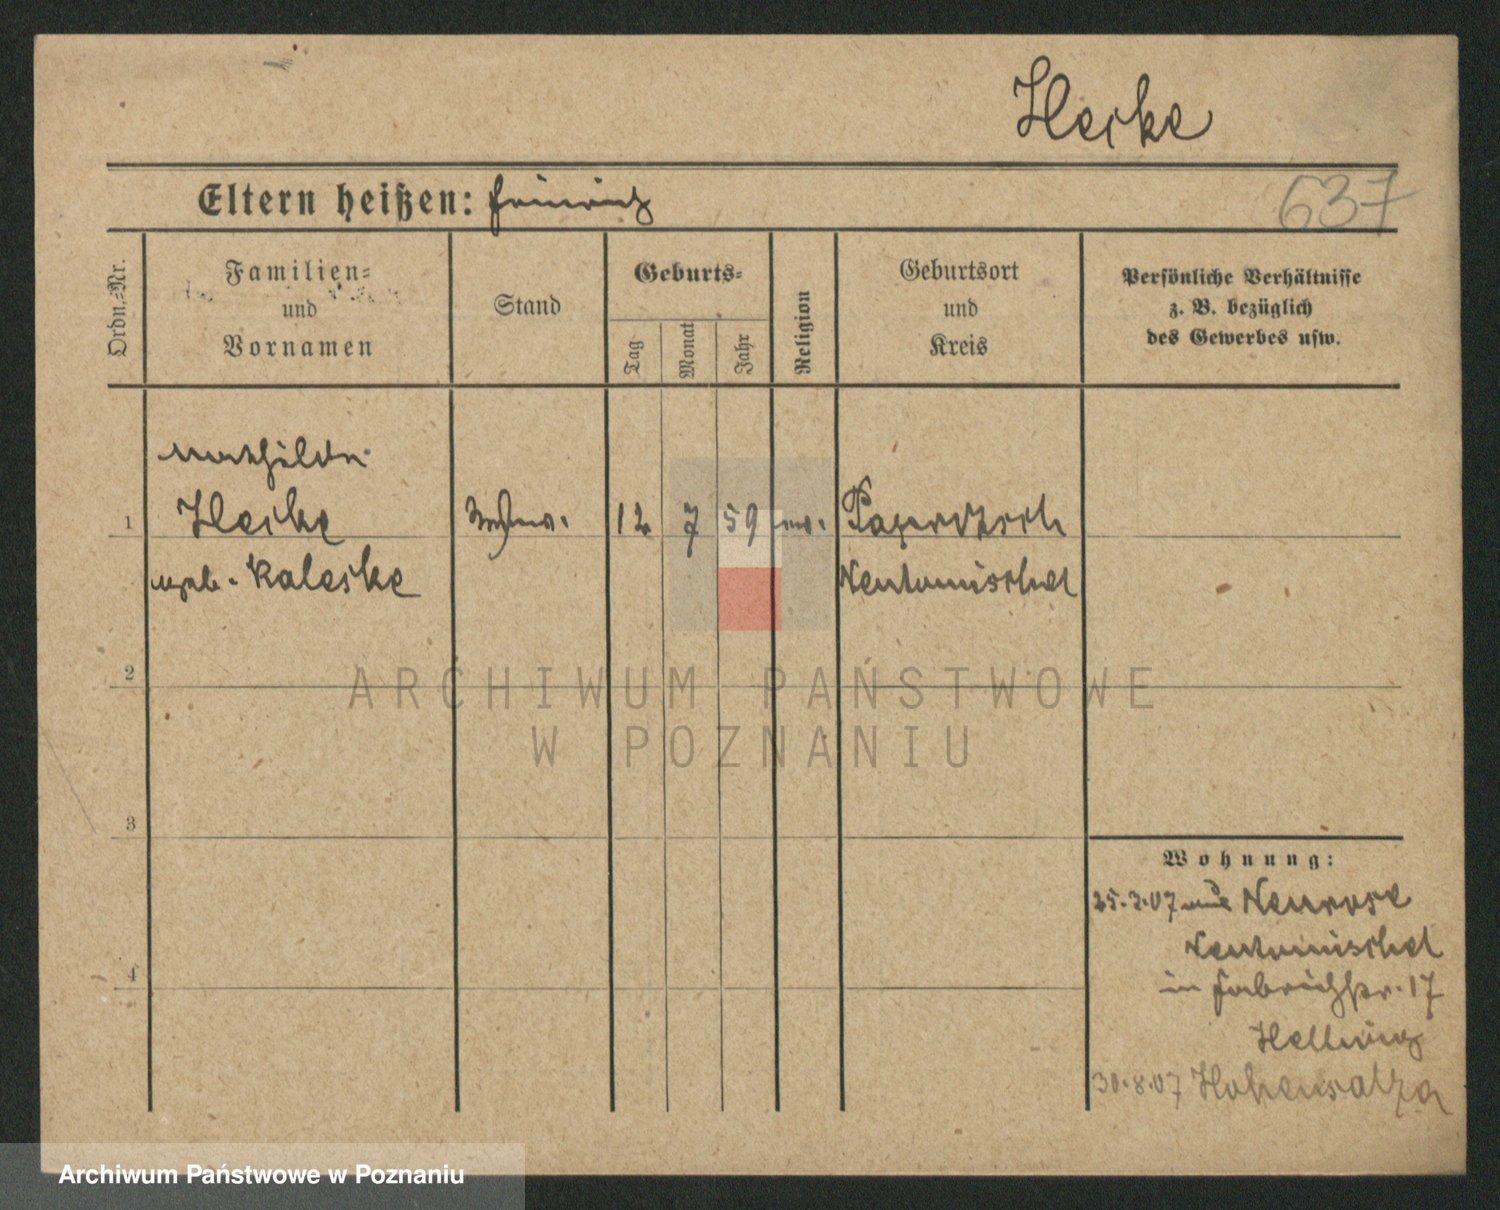 Heiske
Eltern heißen: Heinrich
637
Ordn.-Nr.
Familien-
und
Vornamen
Stand
Geburts-
Tag
Monat
Jahr
Religion
Geburtsort
und
Kreis
Persönliche Verhältnisse
z. B. bezüglich
des Gewerbes usw.
Mathilde
1
12 7 59
geb. Kaleske
Neutomischel
2
3
4
Wohnung:
25.3.07 aus Neurose
Neutomischel
in 17
Hellwig
30.8.07 Hohensalza
ARCHIWUM PAŃSTWOWE
W POZNANIU
Archiwum Państwowe w Poznaniu